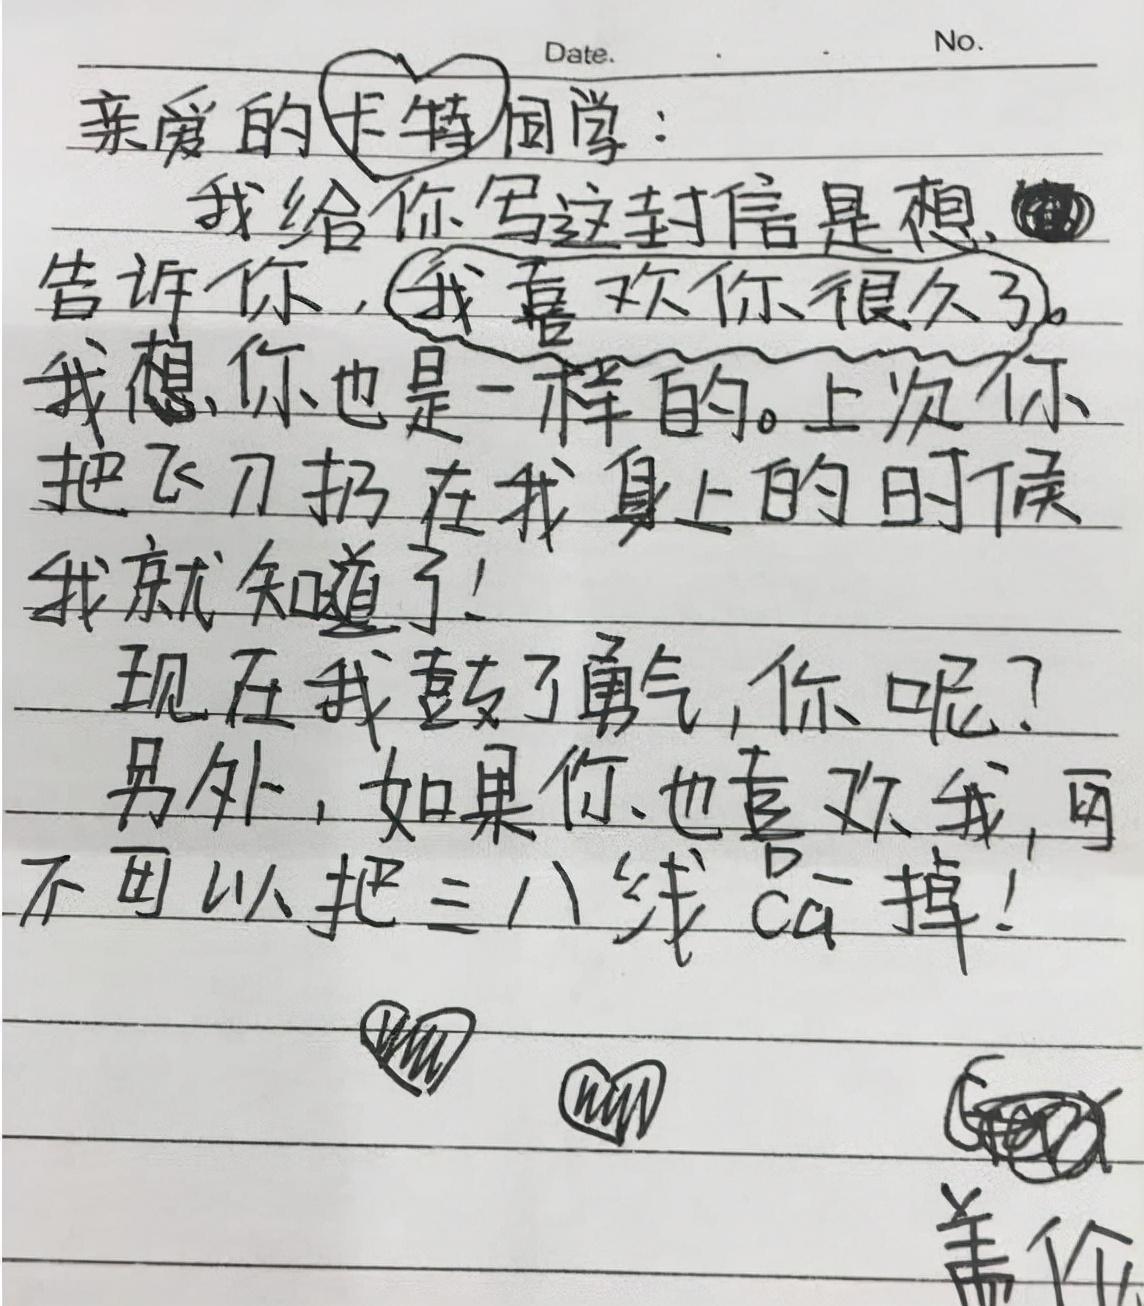 Date. No.
亲爱的卡特同学：
我给你写这封信是想
告诉你，我喜欢你很久了。
我想你也是一样的。上次你
把飞刀扔在我身上的时候
我就知道了！
现在我鼓了勇气，你呢？
另外，如果你也喜欢我，可
不可以把三八线cā掉！
盖伦